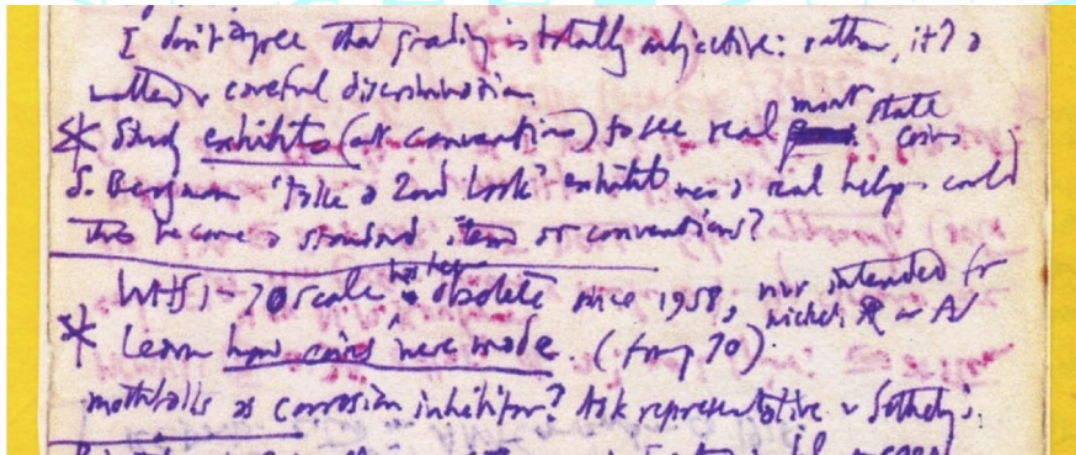 I don't agree that grading is totally subjective: rather, it's a
matter of careful discrimination.
* Study exhibits (at conventions) to see real mint state coins
S. Bergman "Take a 2nd Look" exhibit was a real help - could
this become a standard item at conventions?
WHS 1-70 scale has been obsolete since 1958, not intended for
nickel, AR or AV
* Learn how coins were made. (from 70).
mothballs as corrosion inhibitor? Ask representative of Sotheby's.